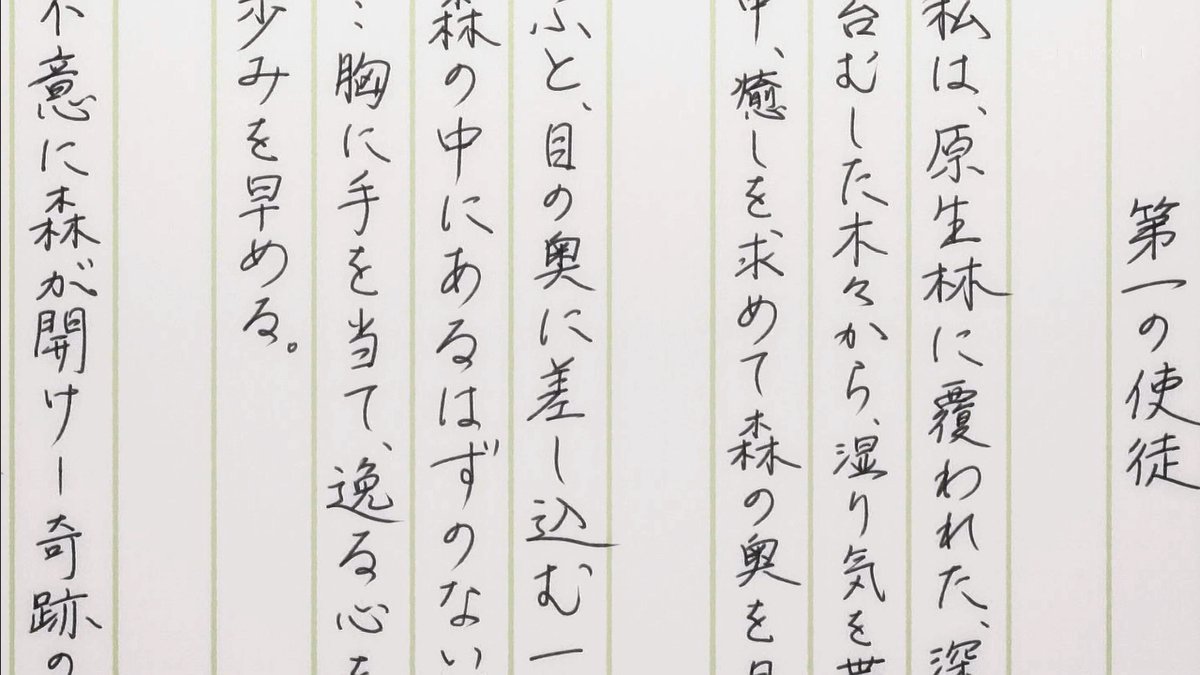 第一の使徒
私は、原生林に覆われた、深
苔むした木々から、湿り気を帯
中、癒しを求めて森の奥を目
ふと、目の奥に差し込む一
森の中にあるはずのない
…胸に手を当て、逸る心を
歩みを早める。
不意に森が開けー奇跡の